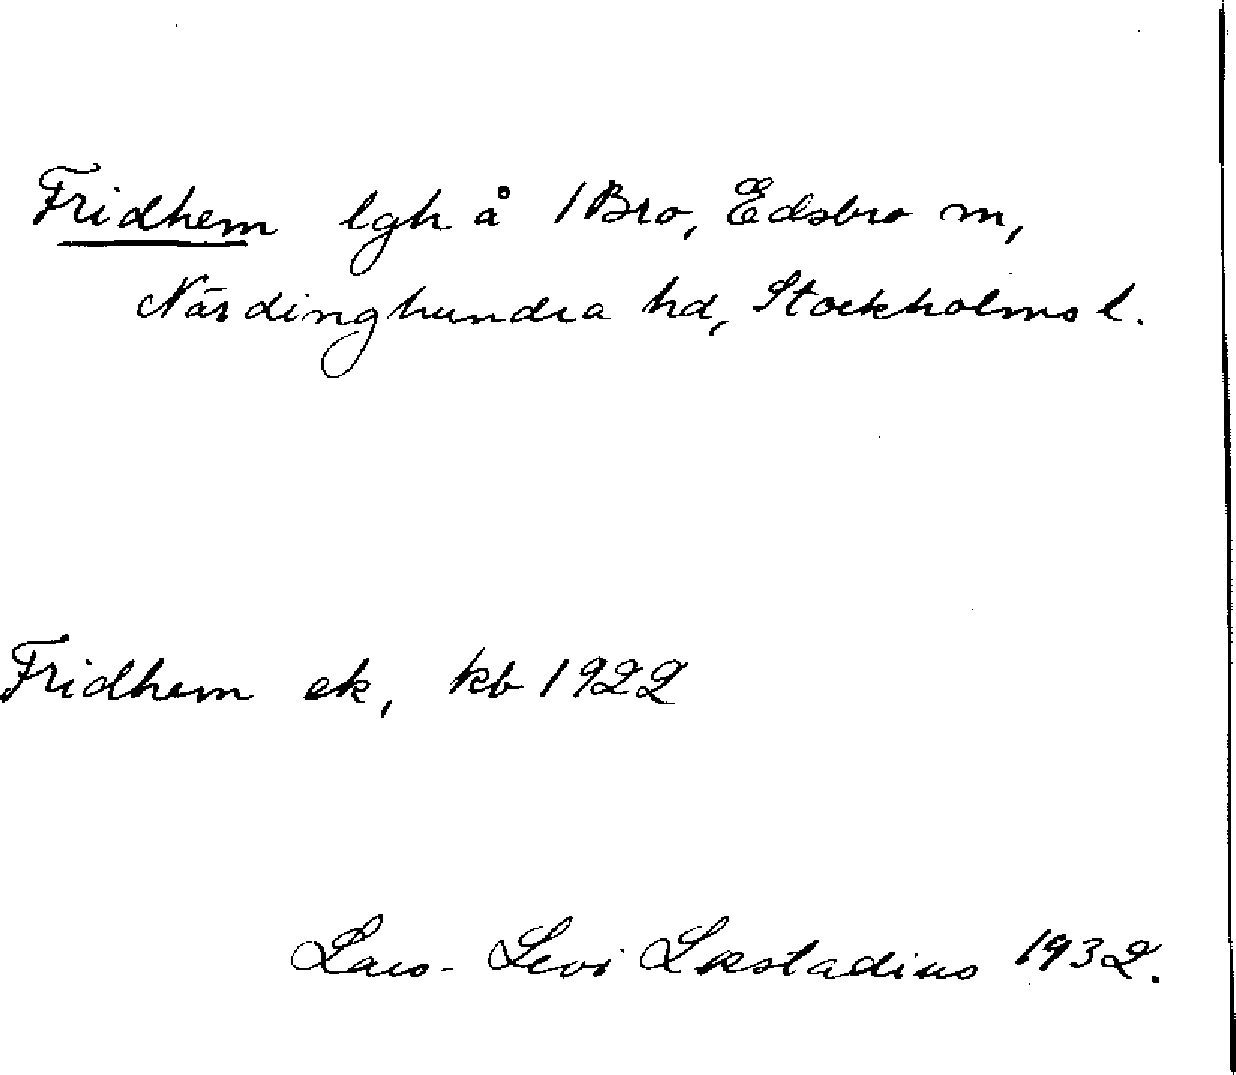 Fridhem lgh å 1 Bro, Edsbro sn,
Närdinghundra hd, Stockholms l.
Fridhem ek, kb 1922
Lars-Levi Læstadius 1932.